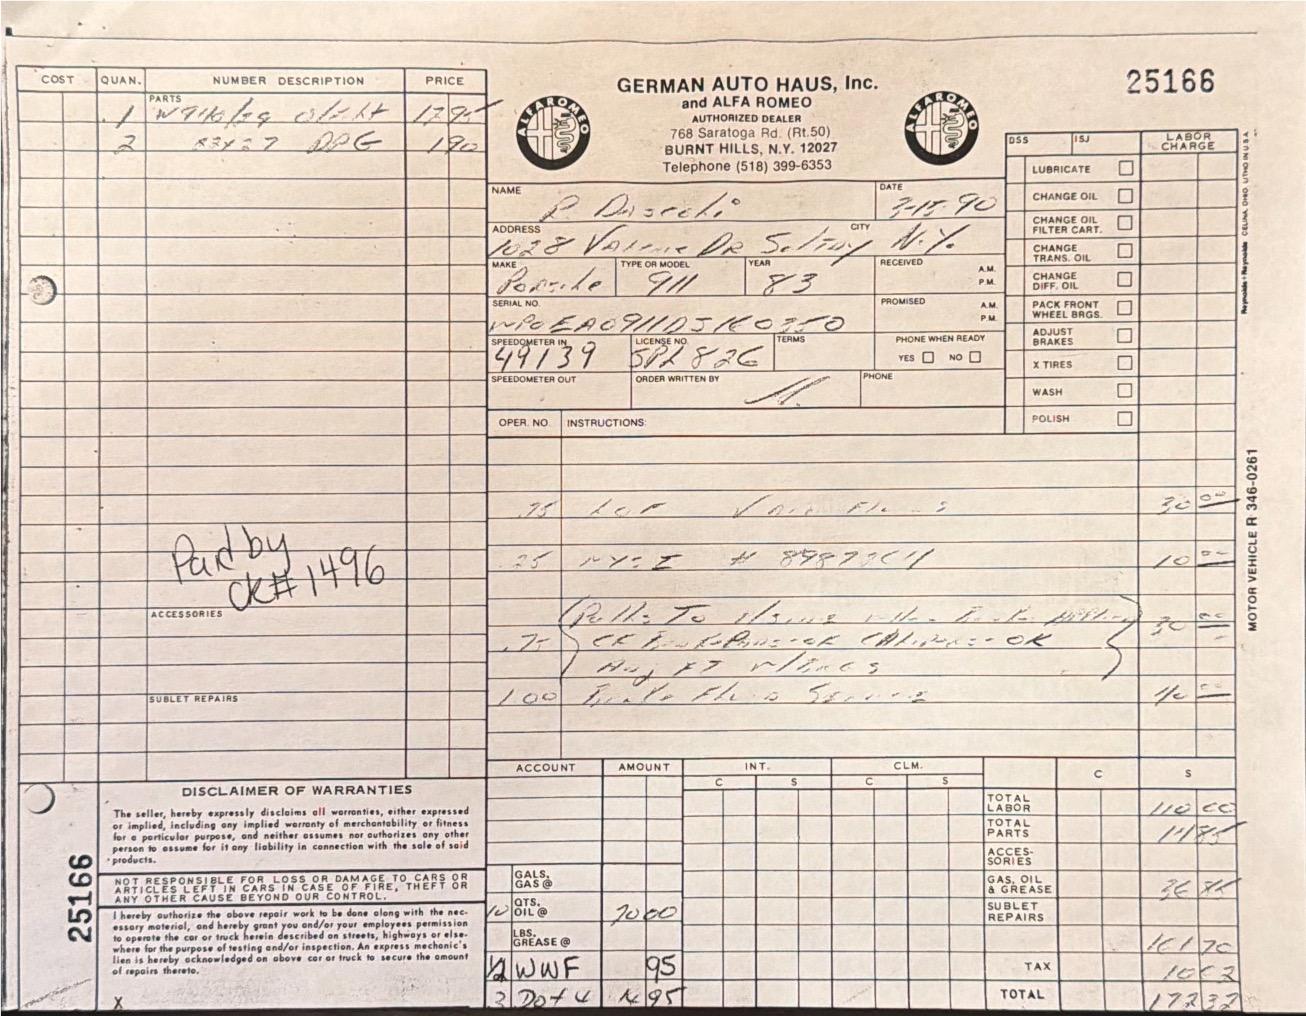 GERMAN AUTO HAUS, Inc.
and ALFA ROMEO
AUTHORIZED DEALER
768 Saratoga Rd. (Rt.50)
BURNT HILLS, N.Y. 12027
Telephone (518) 399-6353
25166
ALFA ROMEO
ALFA ROMEO
COST QUAN. NUMBER DESCRIPTION PRICE
PARTS
1
2
190
NAME P.
DATE 3-15-90
ADDRESS 1028 Dr
CITY N.Y.
MAKE Porsche
TYPE OR MODEL 911
YEAR 83
RECEIVED A.M. P.M.
SERIAL NO. WP0EA0911DS1K0350
PROMISED A.M. P.M.
SPEEDOMETER IN 49139
LICENSE NO. 826
TERMS
PHONE WHEN READY
YES NO
SPEEDOMETER OUT
ORDER WRITTEN BY
PHONE
DSS ISJ LABOR CHARGE
LUBRICATE
CHANGE OIL
CHANGE OIL FILTER CART.
CHANGE TRANS. OIL
CHANGE DIFF. OIL
PACK FRONT WHEEL BRGS.
ADJUST BRAKES
X TIRES
WASH
POLISH
OPER. NO. INSTRUCTIONS:
LOF 30 00
10 00
Pulls To 30 00
.75 OK
1.00 Brake Fluid Service 40 00
Paid by
CK# 1496
ACCESSORIES
SUBLET REPAIRS
DISCLAIMER OF WARRANTIES
The seller, hereby expressly disclaims all warranties, either expressed
or implied, including any implied warranty of merchantability or fitness
for a particular purpose, and neither assumes nor authorizes any other
person to assume for it any liability in connection with the sale of said
products.
NOT RESPONSIBLE FOR LOSS OR DAMAGE TO CARS OR
ARTICLES LEFT IN CARS IN CASE OF FIRE, THEFT OR
ANY OTHER CAUSE BEYOND OUR CONTROL.
I hereby authorize the above repair work to be done along with the nec-
essary material, and hereby grant you and/or your employees permission
to operate the car or truck herein described on streets, highways or else-
where for the purpose of testing and/or inspection. An express mechanic's
lien is hereby acknowledged on above car or truck to secure the amount
of repairs thereto.
X
25166
ACCOUNT AMOUNT INT. CLM.
C S C S C S
GALS, GAS @
10 QTS. OIL @
LBS. GREASE @
1/2 WWF 95
Dot 4
TOTAL LABOR 110 00
TOTAL PARTS
ACCES- SORIES
GAS, OIL & GREASE
SUBLET REPAIRS
161 70
TAX
TOTAL 172 32
MOTOR VEHICLE R 346-0261
Reynolds + Reynolds CELINA, OHIO, LITHO IN U.S.A.